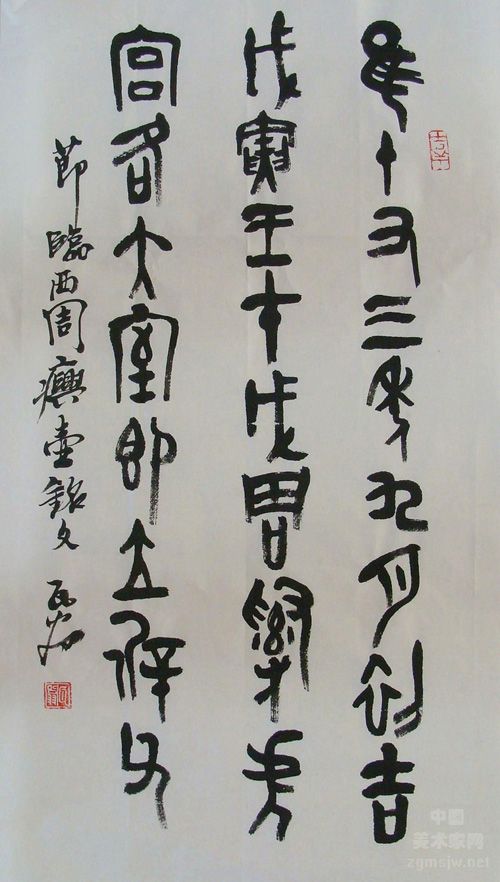 隹十又三年九月初吉
戊寅王才成周𤔲土淲
宮各大室即立徲父
節臨西周𤼈壺銘文
中國
美术家网
zgmsjw.net